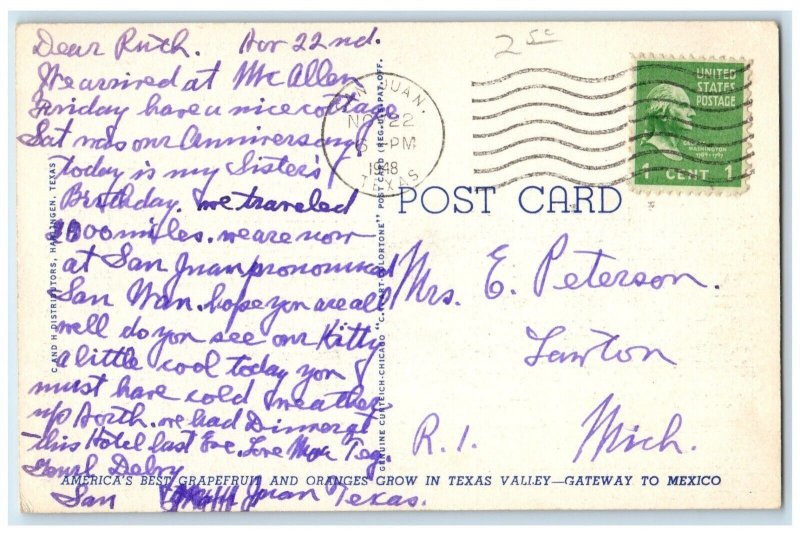 Dear Ruth. Nov 22nd.
We arrived at McAllen
Friday have a nice cottage
Sat was our Anniversary
today is my Sister's
Birthday. we traveled
miles. we are now
at San Juan pronounced
San Wan. hope you are all
well do you see our Kitty
a little cool today you
must have cold weather
up North. we had Dinner at
this Hotel last Eve. Love
San Juan Texas.
25c
SAN JUAN.
NOV 22
PM
1948
TEXAS
UNITED
STATES
POSTAGE
WASHINGTON
1 CENT 1
POST CARD
Mrs. E. Peterson.
Lawton
R.1. Mich.
C AND H DISTRIBUTORS, HARLINGEN, TEXAS
GENUINE CURTEICH-CHICAGO "C.T. ART-COLORTONE" POST CARD (REG. U.S. PAT. OFF.
AMERICA'S BEST GRAPEFRUIT AND ORANGES GROW IN TEXAS VALLEY—GATEWAY TO MEXICO